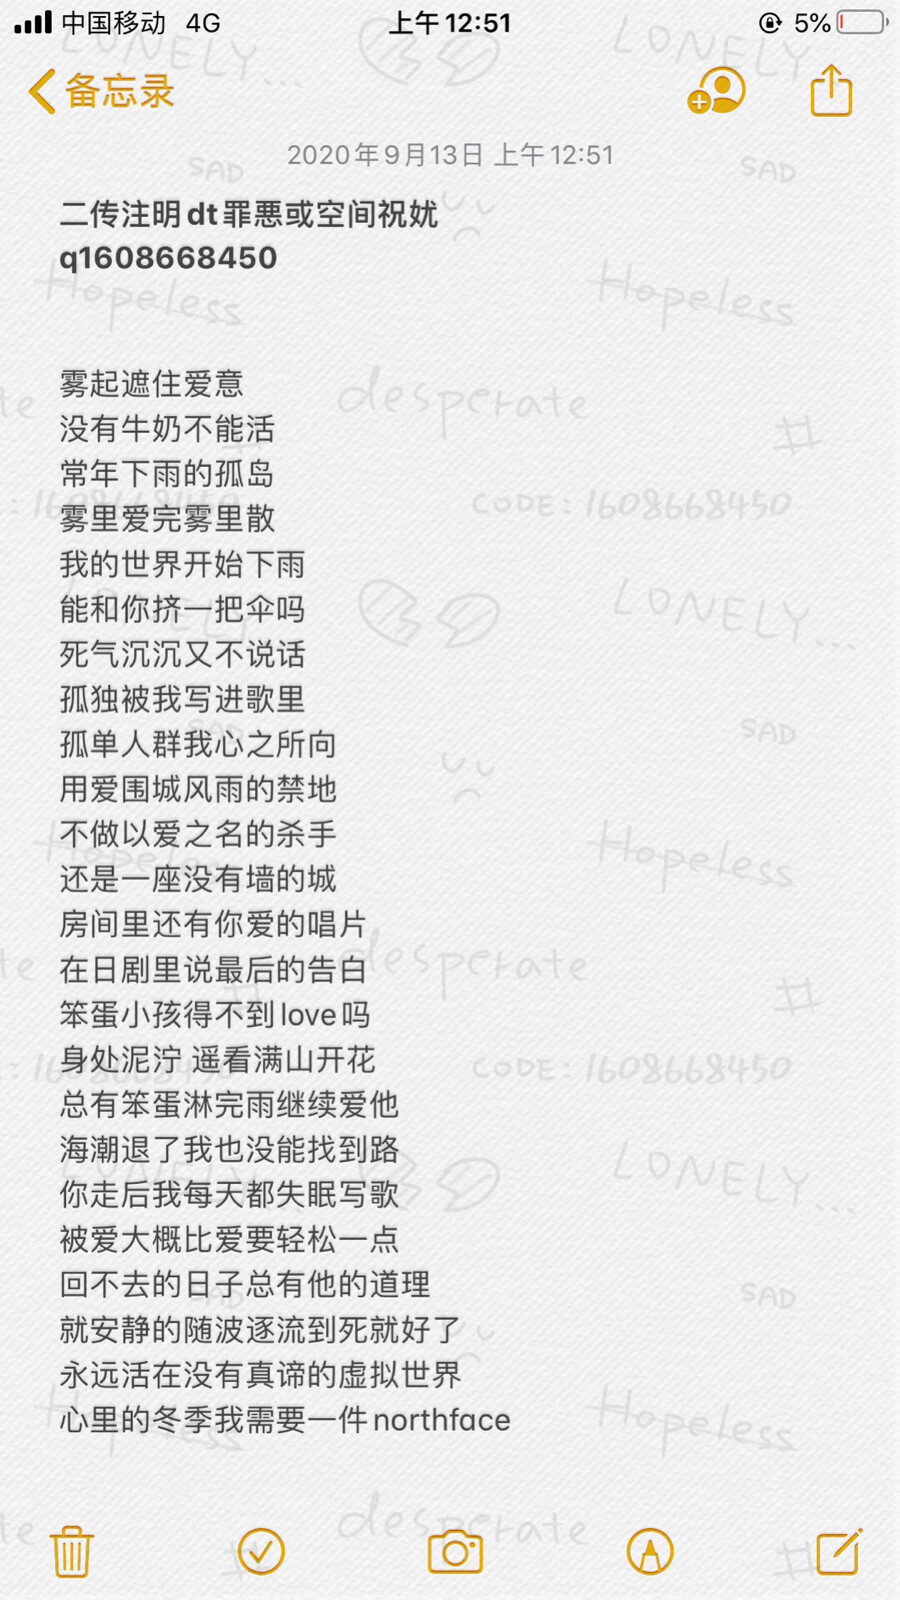 中国移动 4G 上午12:51 5%
备忘录
2020年9月13日 上午12:51
二传注明dt罪悪或空间祝妩
q1608668450
雾起遮住爱意
没有牛奶不能活
常年下雨的孤岛
雾里爱完雾里散
我的世界开始下雨
能和你挤一把伞吗
死气沉沉又不说话
孤独被我写进歌里
孤单人群我心之所向
用爱围城风雨的禁地
不做以爱之名的杀手
还是一座没有墙的城
房间里还有你爱的唱片
在日剧里说最后的告白
笨蛋小孩得不到love吗
身处泥泞 遥看满山开花
总有笨蛋淋完雨继续爱他
海潮退了我也没能找到路
你走后我每天都失眠写歌
被爱大概比爱要轻松一点
回不去的日子总有他的道理
就安静的随波逐流到死就好了
永远活在没有真谛的虚拟世界
心里的冬季我需要一件northface
LONELY... LONELY
SAD SAD
Hopeless Hopeless
te desperate
#
: 1608668450 CODE: 1608668450
LONELY...
SAD SAD
Hopeless Hopeless
te desperate
# #
: 1608668450 CODE: 1608668450
LONELY... LONELY...
SAD SAD
Hopeless Hopeless
te desperate
# #